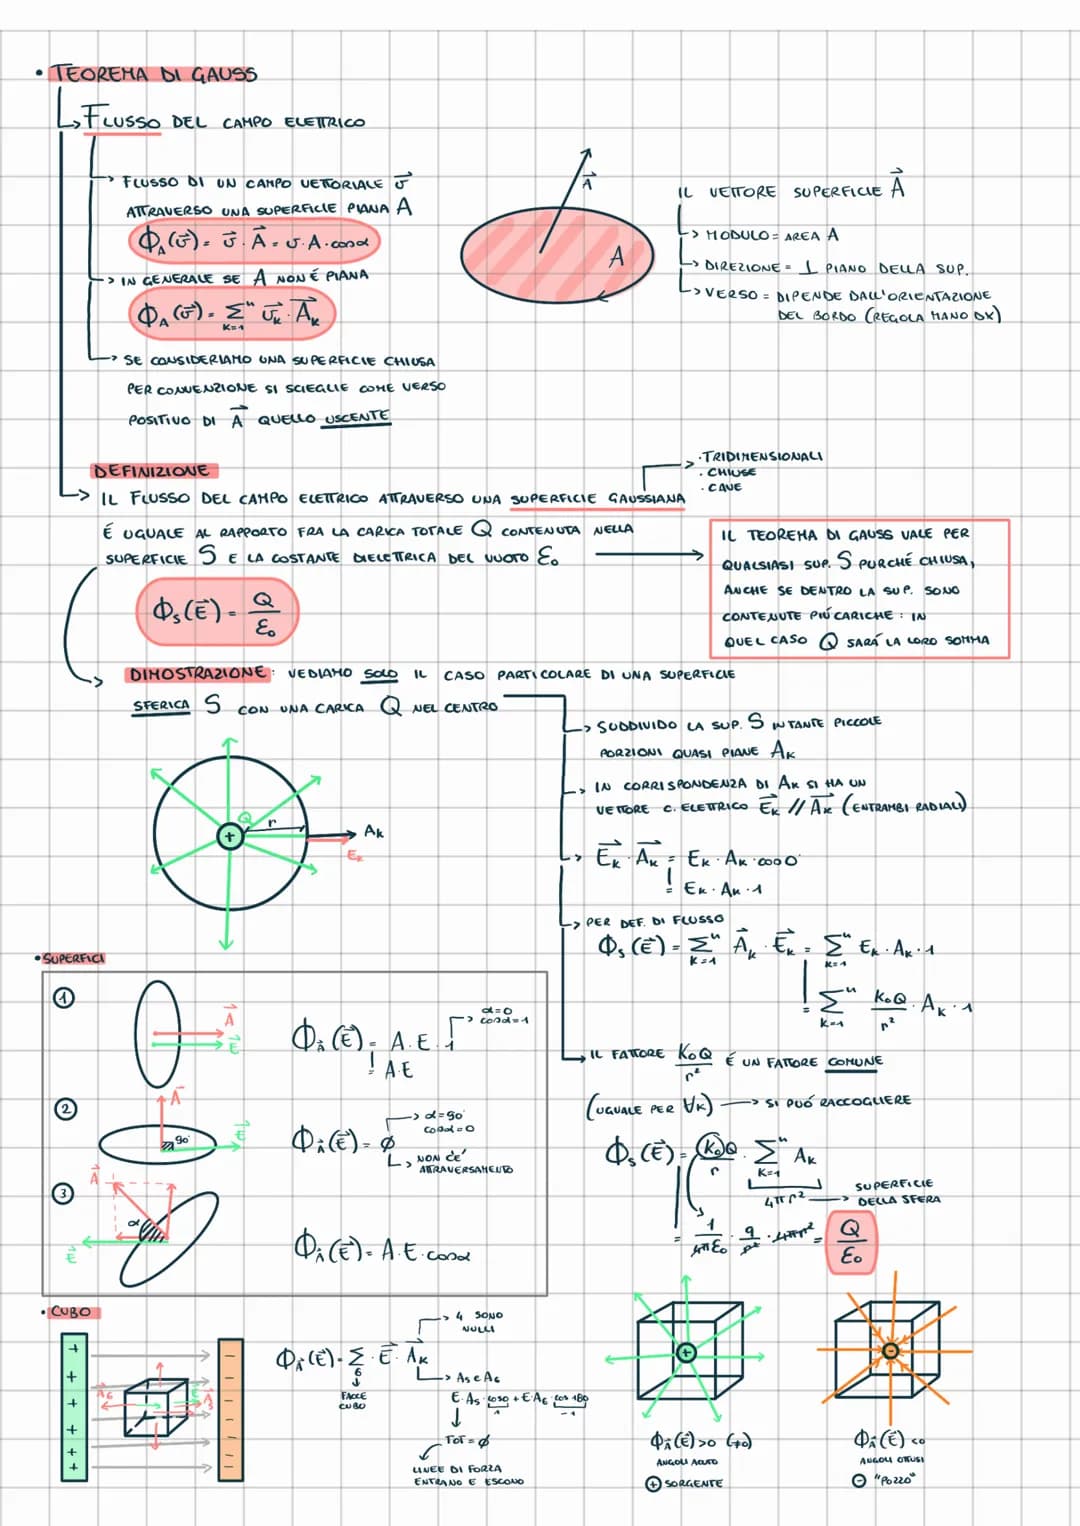 • TEOREMA DI GAUSS
FLUSSO DEL CAMPO ELETTRICO
FLUSSO DI UN CAMPO VETTORIALE v⃗
ATTRAVERSO UNA SUPERFICIE PIANA A
Φ_A(v⃗) = v⃗ · A⃗ = v · A · cosα
IN GENERALE SE A NON É PIANA
Φ_A(v⃗) = Σ^n_{K=1} v⃗_K · A⃗_K
SE CONSIDERIAMO UNA SUPERFICIE CHIUSA
PER CONVENZIONE SI SCIEGLIE COME VERSO
POSITIVO DI A⃗ QUELLO USCENTE
A⃗
A
IL VETTORE SUPERFICIE A⃗
MODULO = AREA A
DIREZIONE = ⊥ PIANO DELLA SUP.
VERSO = DIPENDE DALL'ORIENTAZIONE
DEL BORDO (REGOLA MANO DX)
DEFINIZIONE
IL FLUSSO DEL CAMPO ELETTRICO ATTRAVERSO UNA SUPERFICIE GAUSSIANA
· TRIDIMENSIONALI
· CHIUSE
· CAVE
É UGUALE AL RAPPORTO FRA LA CARICA TOTALE Q CONTENUTA NELLA
SUPERFICIE S E LA COSTANTE DIELETTRICA DEL VUOTO ε₀
Φ_S(E⃗) = Q/ε₀
IL TEOREMA DI GAUSS VALE PER
QUALSIASI SUP. S PURCHÉ CHIUSA,
ANCHE SE DENTRO LA SUP. SONO
CONTENUTE PIÚ CARICHE : IN
QUEL CASO Q SARÁ LA LORO SOMMA
DIMOSTRAZIONE: VEDIAMO SOLO IL CASO PARTICOLARE DI UNA SUPERFICIE
SFERICA S CON UNA CARICA Q NEL CENTRO
Q
r
+
A_K
E_K
SUDDIVIDO LA SUP. S IN TANTE PICCOLE
PORZIONI QUASI PIANE A_K
IN CORRISPONDENZA DI A_K SI HA UN
VETTORE C. ELETTRICO E⃗_K // A⃗_K (ENTRAMBI RADIALI)
E⃗_K · A⃗_K = E_K · A_K · cos0°
= E_K · A_K · 1
PER DEF. DI FLUSSO
Φ_S(E⃗) = Σ^n_{K=1} A⃗_K · E⃗_K = Σ^n_{K=1} E_K · A_K · 1
= Σ^n_{K=1} K₀Q/r² · A_K · 1
IL FATTORE K₀Q/r² É UN FATTORE COMUNE
(UGUALE PER ∀K) → SI PUÓ RACCOGLIERE
Φ_S(E⃗) = K₀Q/r · Σ^n_{K=1} A_K
4πr² → SUPERFICIE
DELLA SFERA
= 1/4πε₀ · q/r² · 4πr² = Q/ε₀
• SUPERFICI
1
A⃗
E⃗
Φ_A⃗(E⃗) = A·E·1
α=0
cosα=1
= A·E
2
A⃗
90°
E⃗
Φ_A⃗(E⃗) = ∅
α=90°
cosα=0
NON C'É
ATTRAVERSAMENTO
3
A⃗
α
E⃗
Φ_A⃗(E⃗) = A·E·cosα
• CUBO
+ + + + + +
A⃗₆
E⃗
A⃗₅
Φ_A⃗(E⃗) = Σ_6 · E⃗ · A⃗_K
FACCE
CUBO
4 SONO
NULLI
A₅ e A₆
E·A₅·cos0 + E·A₆·cos180
1
-1
TOT = ∅
LINEE DI FORZA
ENTRANO E ESCONO
+
Φ_A⃗(E⃗) >0 (+∞)
ANGOLI ACUTI
⊕ SORGENTE
-
Φ_A⃗(E⃗) <0
ANGOLI OTTUSI
⊖ "POZZO"